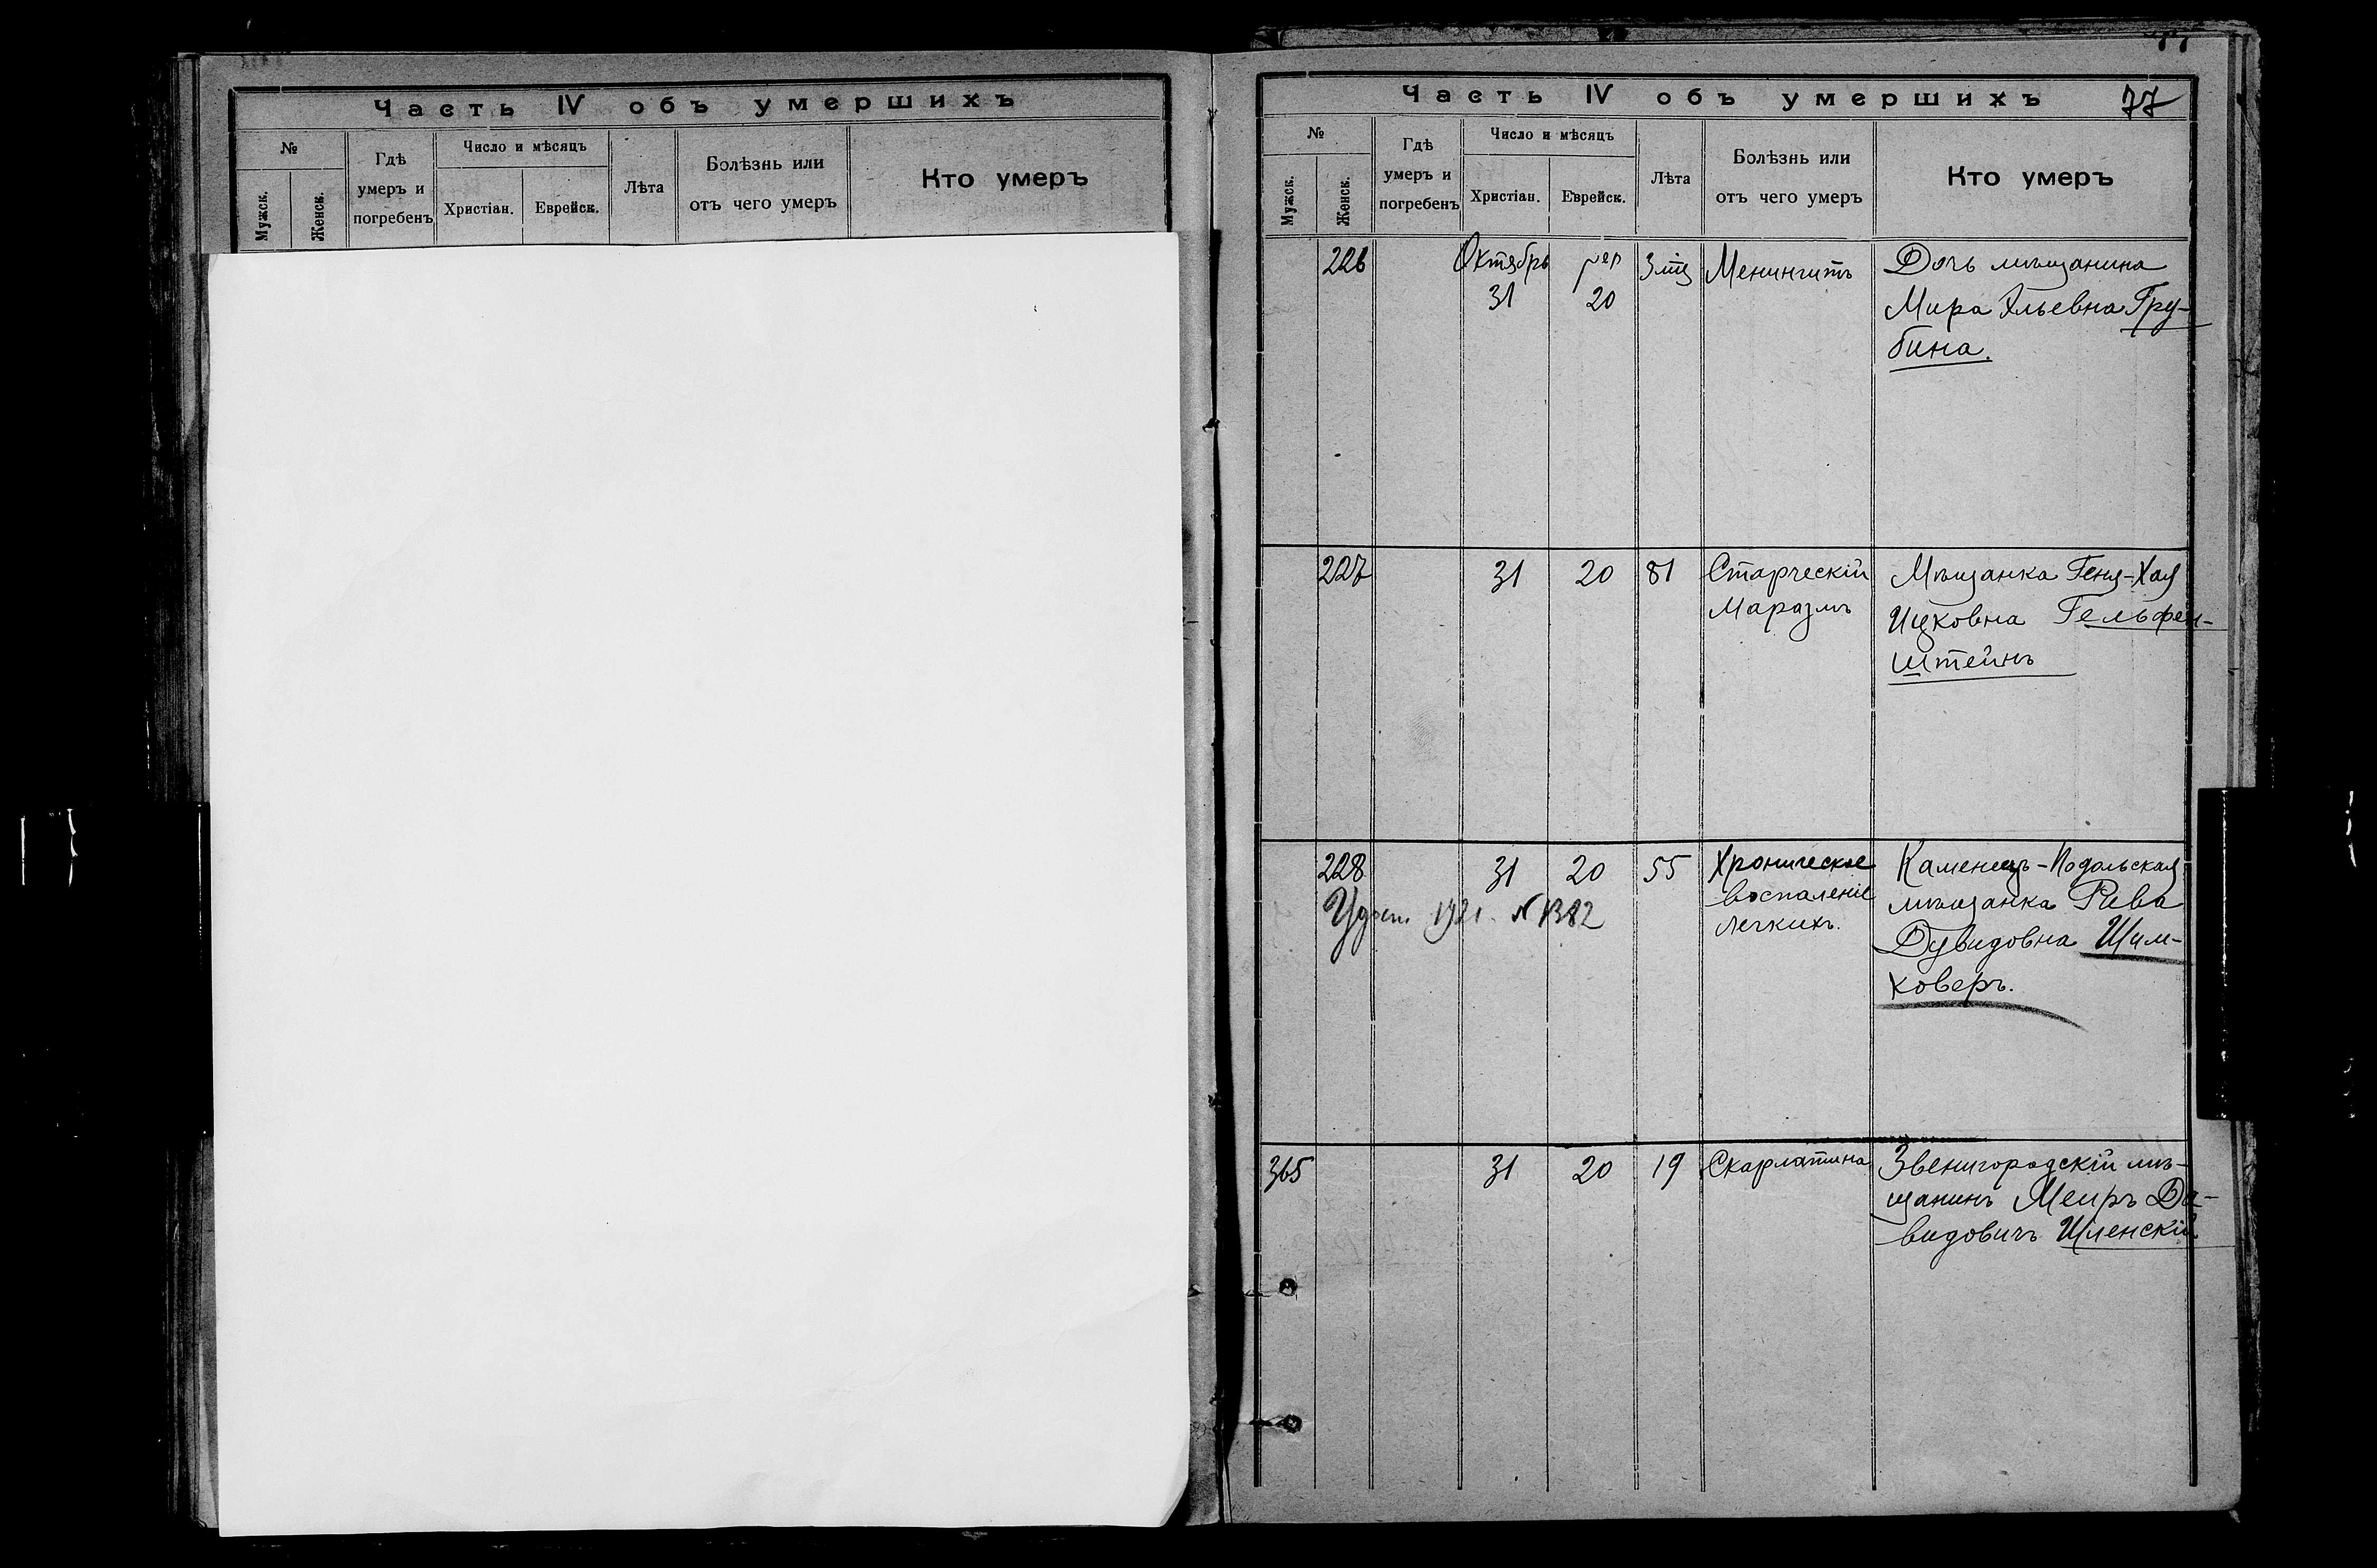 Часть IV объ умершихъ
№
Мужск.
Женск.
Гдѣ
умеръ и
погребенъ
Число и мѣсяцъ
Христіан.
Еврейск.
Лѣта
Болѣзнь или
отъ чего умеръ
Кто умеръ
Часть IV объ умершихъ
77
№
Мужск.
Женск.
Гдѣ
умеръ и
погребенъ
Число и мѣсяцъ
Христіан.
Еврейск.
Лѣта
Болѣзнь или
отъ чего умеръ
Кто умеръ
226
Октябрь
31
20
Менингитъ
Дочь мѣщанина
Мира Эльевна Гру-
бина.
227
31
20
81
Старческій
Маразмъ
Мѣщанка Геня-Хая
Ицковна Гельфен-
штейнъ
228
31
20
55
Хроническое
воспаленіе
легкихъ.
Каменецъ-Подольская
мѣщанка Рива
Дувидовна Шим-
коверъ.
1921 N 1382
365
31
20
19
Скарлатина
Звенигородскій мѣ-
щанинъ Меиръ Да-
видовичъ Шленскій